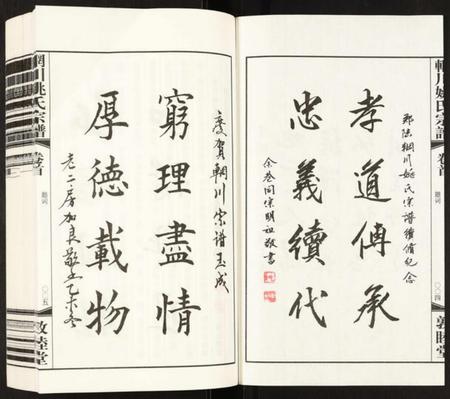 輞川姚氏宗譜
卷首
題词
〇〇四
敦睦堂
郡陵輞川姚氏宗譜續脩紀念
孝道傳承
忠義續代
余巷同宗明祖敬書
慶賀輞川宗譜玉成
窮理盡情
厚德載物
老二房加良敬书乙未冬
輞川姚氏宗譜
卷首
題词
〇〇五
敦睦堂